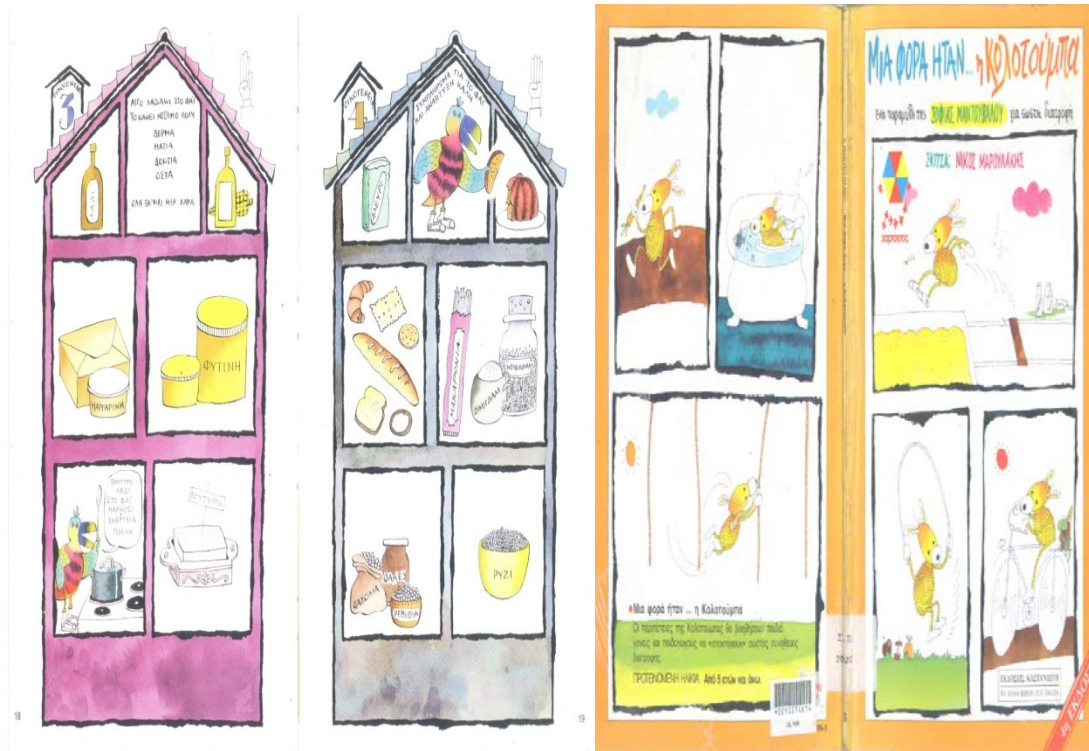 ΟΙΚΟΓΕΝΕΙΑ
3
ΛΙΓΟ ΛΑΔΑΚΙ ΣΤΟ ΦΑΪ
ΤΟ ΚΑΝΕΙ ΝΟΣΤΙΜΟ ΠΟΛΥ
ΔΕΡΜΑ
ΜΑΤΙΑ
ΔΟΝΤΙΑ
ΟΣΤΑ
ΟΛΑ ΘΑ ΜΙΑ ΧΑΡΑ
ΛΑΔΙ
ΜΑΡΓΑΡΙΝΗ
ΦΥΤΙΝΗ
ΒΟΥΤΥΡΟ
ΛΑΔΙ
ΣΤΟ ΦΑΪ
ΠΑΡΑΓΕΙ
ΕΝΕΡΓΕΙΑ
ΠΟΛΛΗ
ΒΟΥΤΥΡΟ
18
ΟΙΚΟΓΕΝΕΙΑ
4
ΣΥΜΠΛΗΡΩΜΑ ΓΙΑ ΤΟ ΦΑΪ
ΚΑΙ ΑΝΑΠΤΥΞΗ ΚΑΛΗ
ΑΛΕΥΡΙ
ΜΑΚΑΡΟΝΙΑ
ΣΙΜΙΓΔΑΛΙ
ΚΡΙΘΑΡΑΚΙ
ΦΑΣΟΛΙΑ
ΦΑΚΕΣ
ΡΕΒΙΘΙΑ
ΡΥΖΙ
19
Μια φορά ήταν ... η Κολοτούμπα
Οι περιπέτειες της Κολοτούμπας θα βοηθήσουν παιδιά,
γονείς και παιδαγωγούς να «αποκτήσουν» σωστές συνήθειες
διατροφής.
ΠΡΟΤΕΙΝΟΜΕΝΗ ΗΛΙΚΙΑ: Από 5 ετών και άνω.
ΜΙΑ ΦΟΡΑ ΗΤΑΝ... η Κολοτούμπα
Ένα παραμύθι της ΣΟΦΙΑΣ ΜΑΝΤΟΥΒΑΛΟΥ για σωστή διατροφή
ΣΚΙΤΣΑ: ΝΙΚΟΣ ΜΑΡΟΥΛΑΚΗΣ
ΕΚΔΟΣΕΙΣ ΚΑΣΤΑΝΙΩΤΗ
4η ΕΚΔΟΣΗ